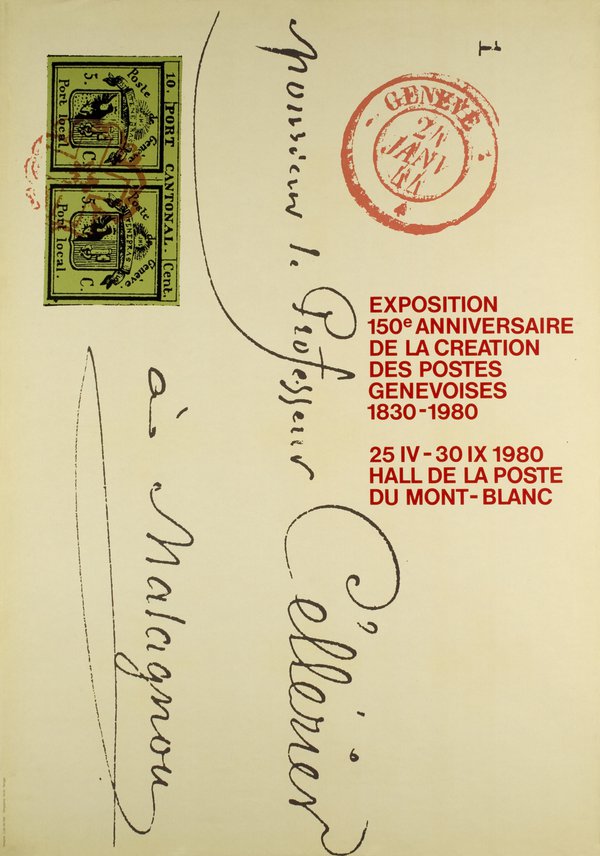 1
GENEVE
24
JANV
44
10. PORT CANTONAL. Cent.
Poste de Genève
5. C.
Port local.
Poste de Genève
5. C.
Port local.
Monsieur le Professeur Cellérier
à Malagnou
EXPOSITION
150e ANNIVERSAIRE
DE LA CREATION
DES POSTES
GENEVOISES
1830-1980
25 IV - 30 IX 1980
HALL DE LA POSTE
DU MONT-BLANC